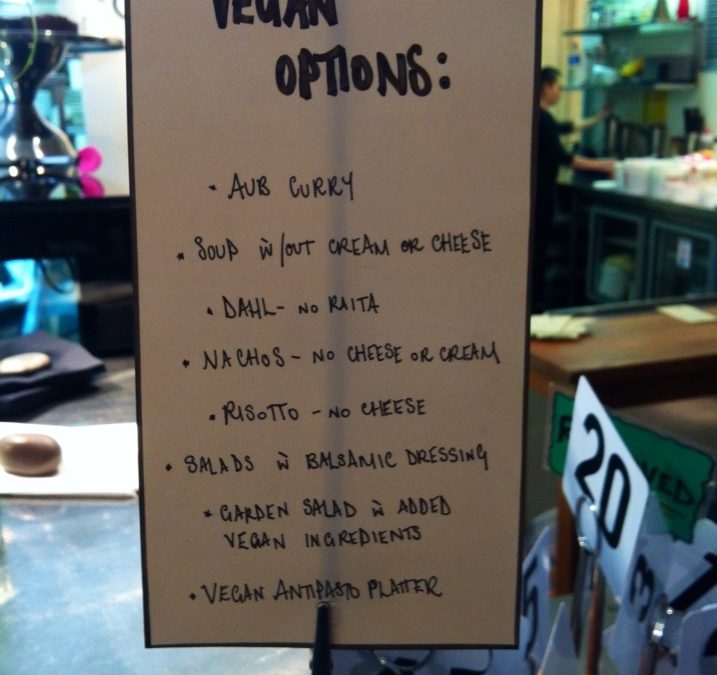 VEGAN
OPTIONS:
• AUB CURRY
• SOUP W/OUT CREAM OR CHEESE
• DAHL - NO RAITA
• NACHOS - NO CHEESE OR CREAM
• RISOTTO - NO CHEESE
• SALADS W BALSAMIC DRESSING
• GARDEN SALAD W ADDED
VEGAN INGREDIENTS
• VEGAN ANTIPASTO PLATTER
20
5
3
1